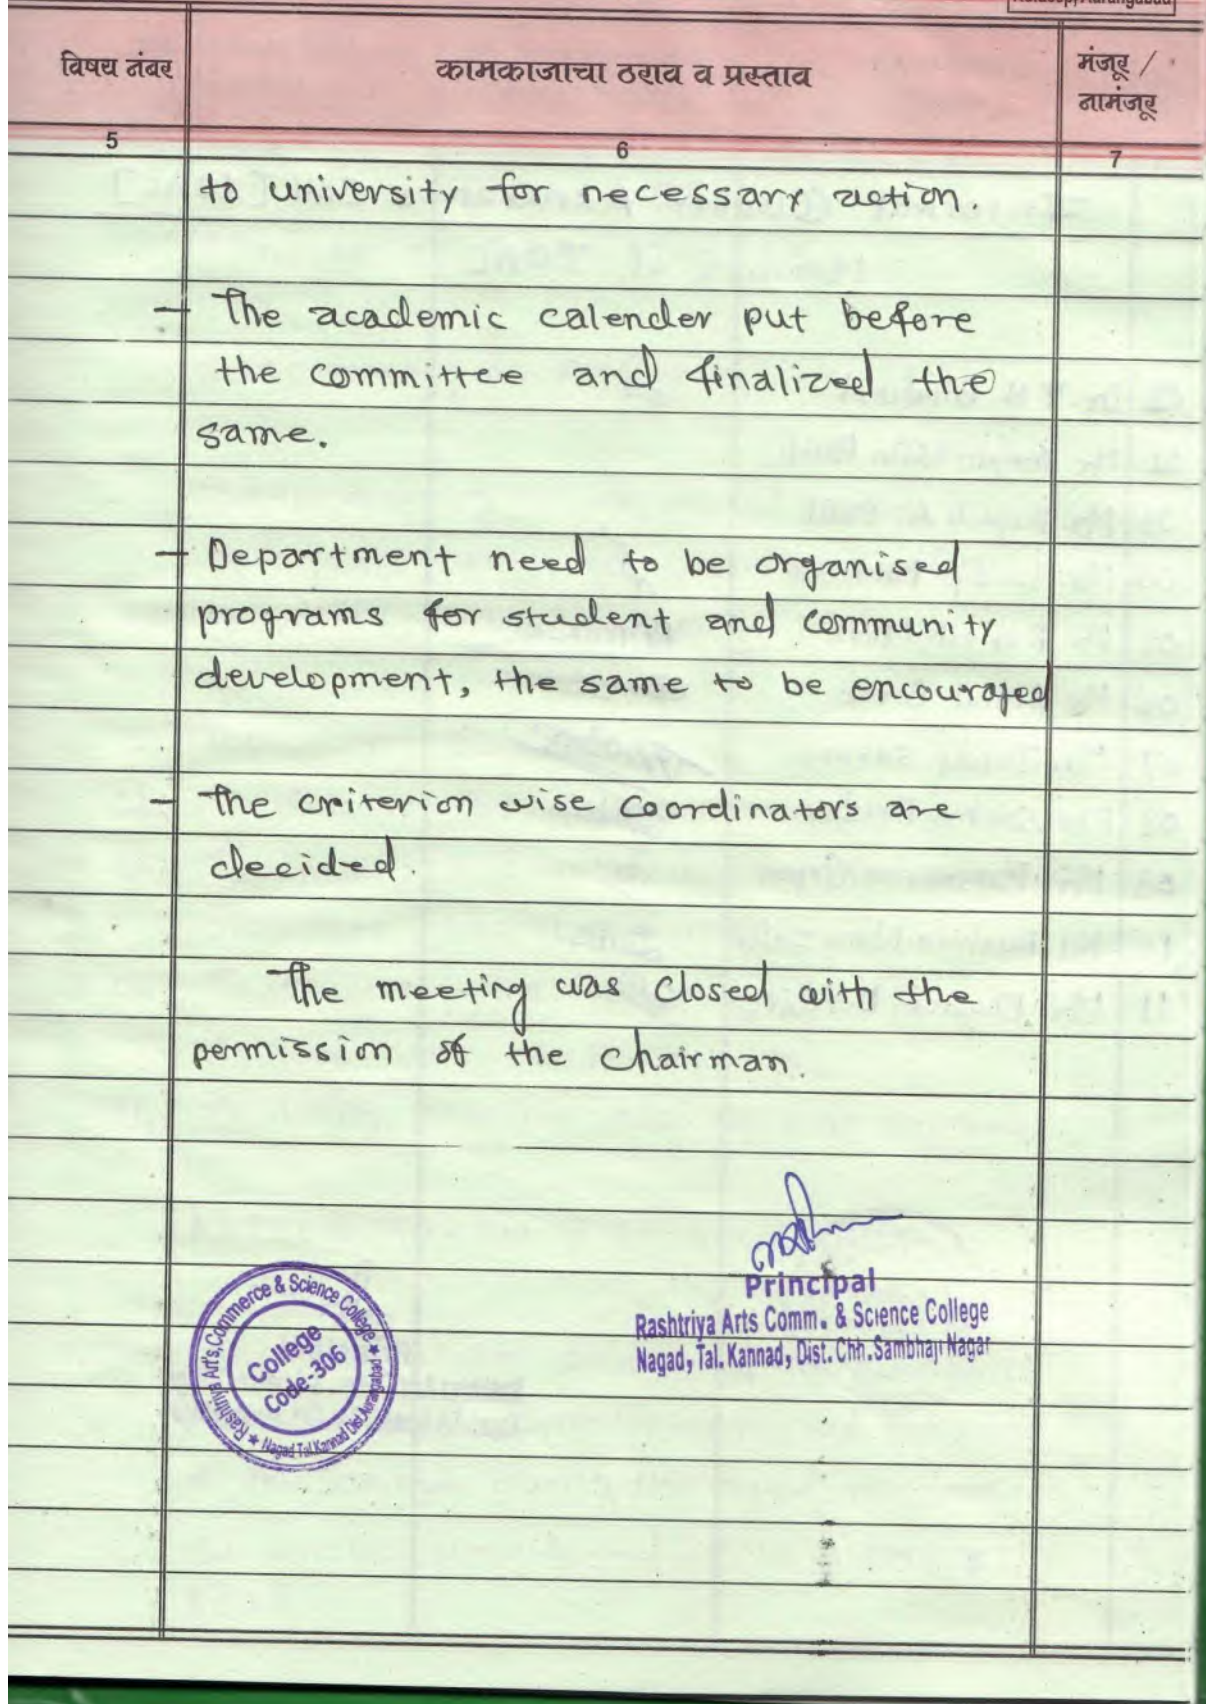 विषय नंबर
कामकाजाचा ठराव व प्रस्ताव
मंजूर /
नामंजूर
5
6
7
to university for necessary action.
- The academic calender put before
the committee and finalized the
same.
- Department need to be organised
programs for student and community
development, the same to be encouraged
- The criterion wise coordinators are
decided.
The meeting was closed with the
permission of the chairman.
Principal
Rashtriya Arts Comm. & Science College
Nagad, Tal. Kannad, Dist. Chh. Sambhaji Nagar
Rashtriya Art's, Commerce & Science College ★
College
Code-306
★ Nagad Tal.Kannad Dist.Aurangabad ★